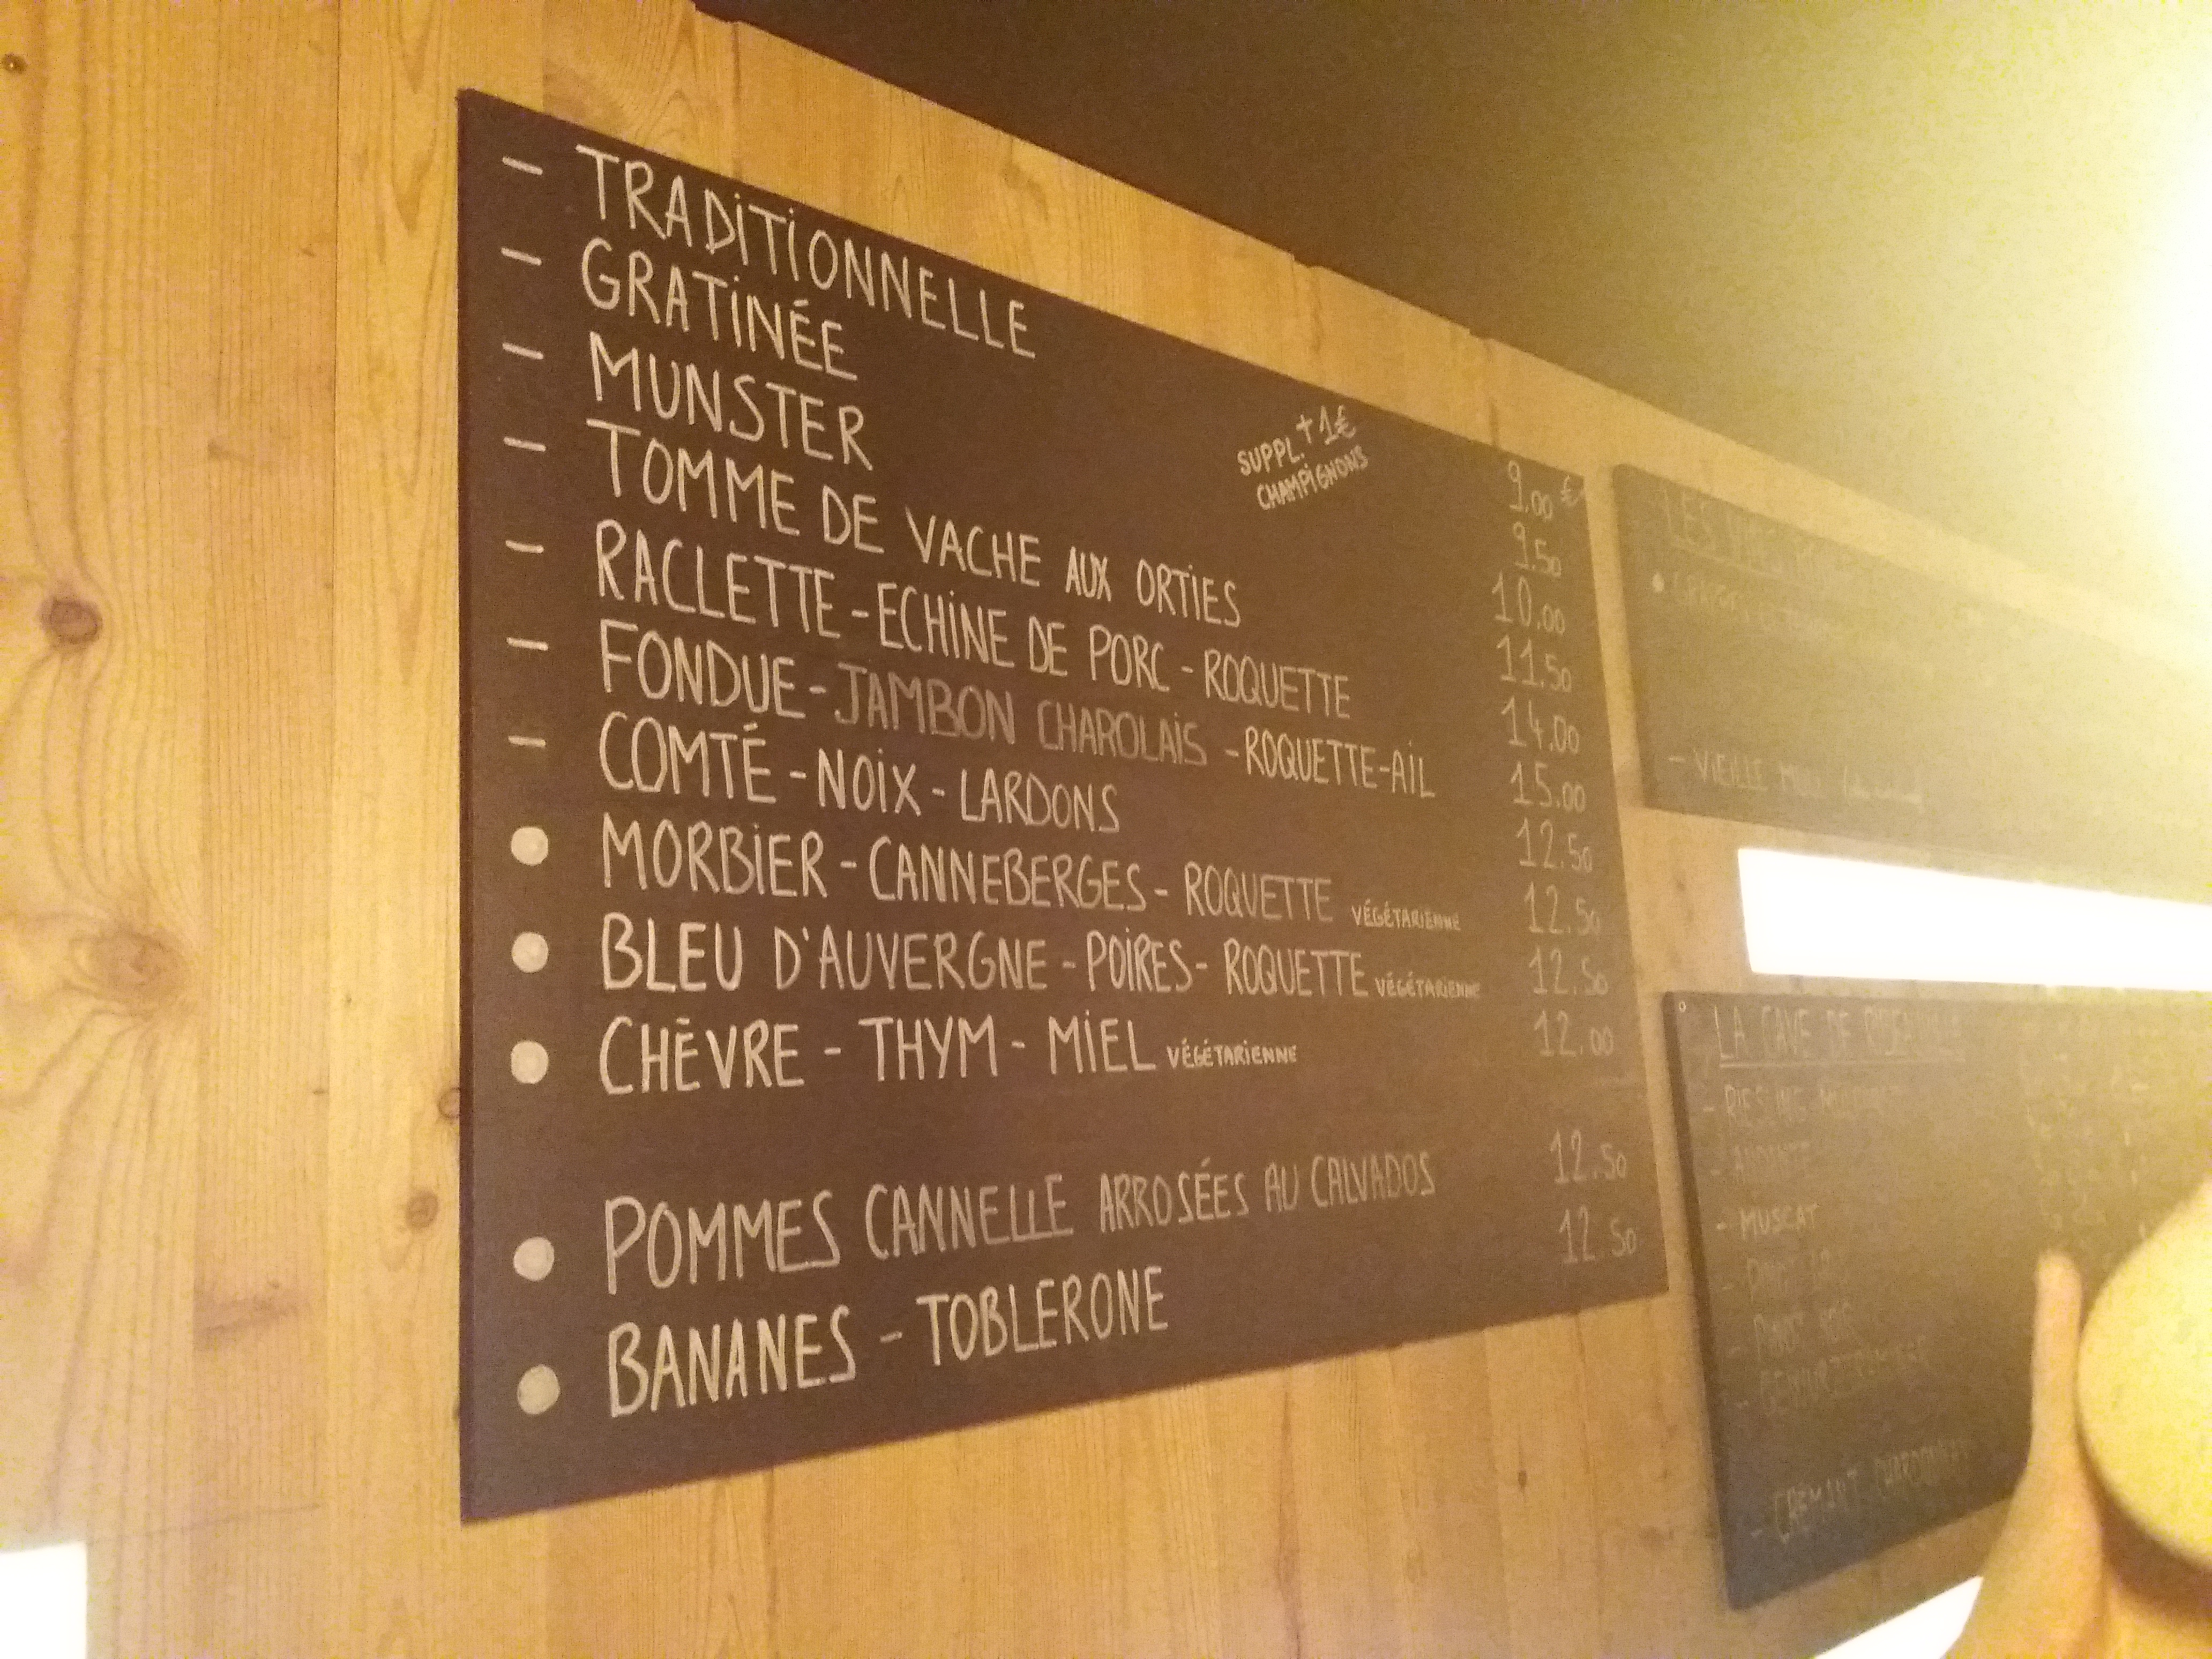 - TRADITIONNELLE 9.00 €
- GRATINÉE 9.50
- MUNSTER 10.00
SUPPL. + 1€
CHAMPIGNONS
- TOMME DE VACHE AUX ORTIES 11.50
- RACLETTE - ECHINE DE PORC - ROQUETTE 14.00
- FONDUE - JAMBON CHAROLAIS - ROQUETTE - AIL 15.00
- COMTÉ - NOIX - LARDONS 12.50
• MORBIER - CANNEBERGES - ROQUETTE VÉGÉTARIENNE 12.50
• BLEU D'AUVERGNE - POIRES - ROQUETTE VÉGÉTARIENNE 12.50
• CHÈVRE - THYM - MIEL VÉGÉTARIENNE 12.00
• POMMES CANNELLE ARROSÉES AU CALVADOS 12.50
• BANANES - TOBLERONE 12.50
LES
- VIEILLE
LA CAVE DE
- RIESLING
- MUSCAT
- PINOT
- PINOT
- GEWURZTRAMINER
- CREMANT CHARDONNAY